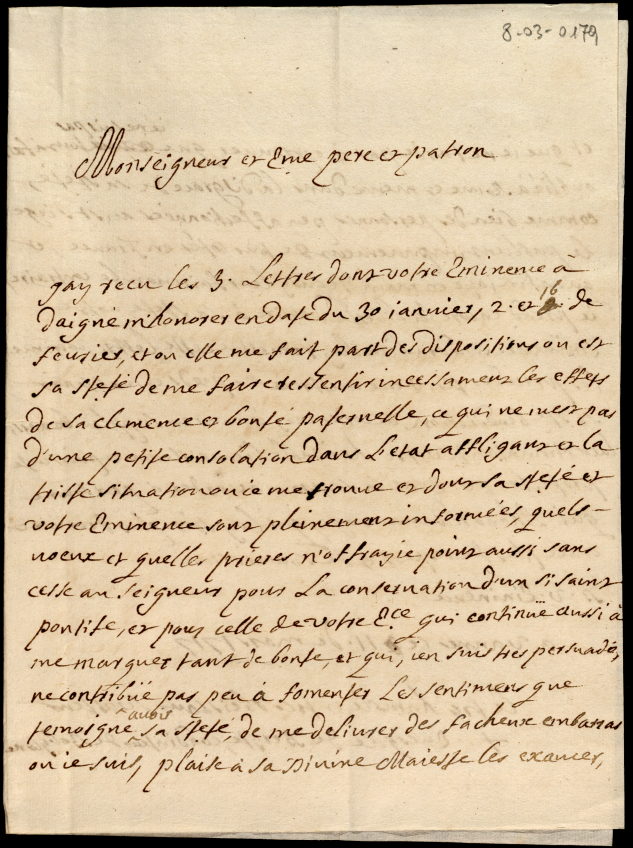 8-03-0179
Monseigneur et Eme pere et patron
gay recu les 3. Lettres dont votre Eminence à
daigné m'honorer en date du 30 ianuier, 2. et 16 de
feurier, et ou elle me fait part des dispositions ou est
sa steté de me faire ressentir incessament les effets
de sa clemence et bonté paternelle, ce qui ne m'est pas
d'une petite consolation dans L'etat affligant et la
triste situation ou ie me trouue et dont sa steté et
votre Eminence sont pleinement informées, quels
voeux et quelles prieres n'offrayie point aussi sans
cesse au seigneur pour La conseruation d'un si saint
pontife, et pour celle de votre Ece qui continüe aussi à
me marquer tant de bonté, et qui, i'en suis tres persuadé,
ne contribüe pas peu à fomenter Les sentimens que
temoigne auoir sa steté, de me deliurer des facheux embarras
ou ie suis, plaise à sa Diuine Maieste les exaucer,